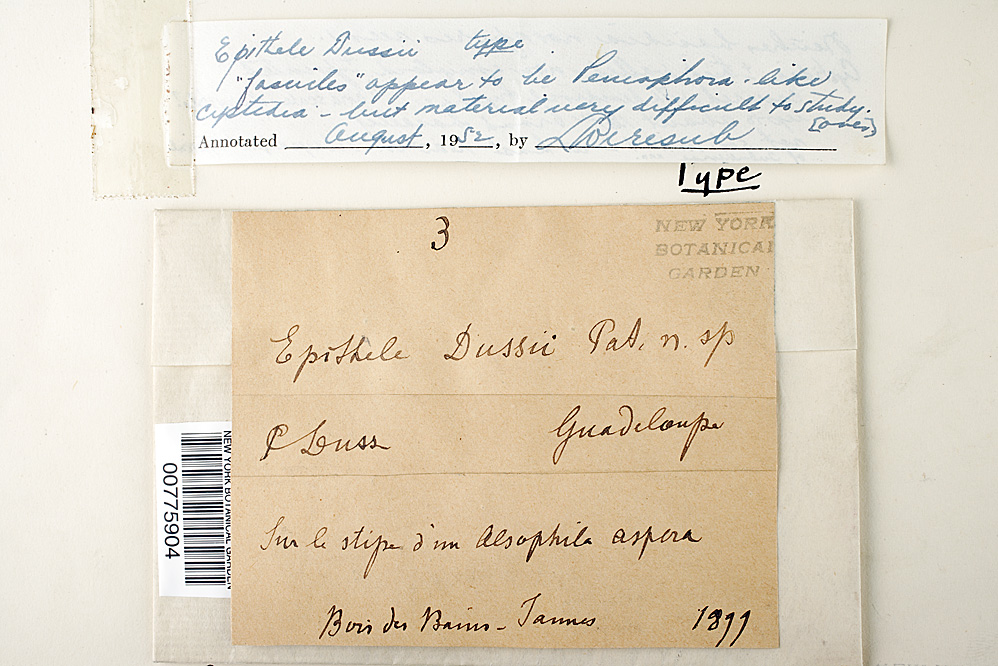 Epithele Dussii type
"fasciles" appear to be Peniophora-like
cystidia - but material very difficult to study.
(over)
Annotated August, 1952, by
Type
3
NEW YORK
BOTANICAL
GARDEN
Epithele Dussii Pat. n. sp
P Duss Guadeloupe
Sur le stipe d'un Alsophila aspera
Bois des Bains - Jaunes 1899
NEW YORK BOTANICAL GARDEN
00775904